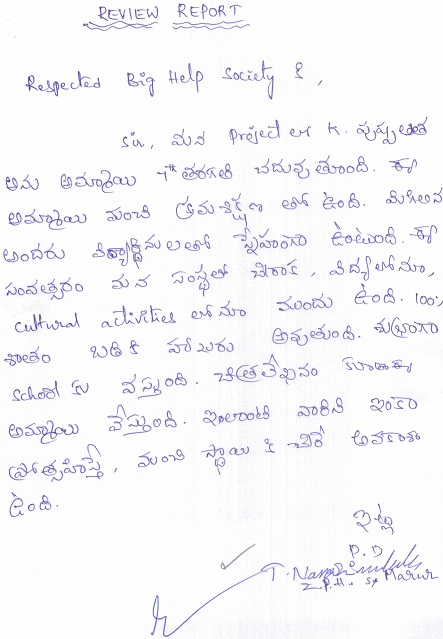 REVIEW REPORT
Respected Big Help Society కి,
Sir, మన Project లో K. పుష్పలత
అను అమ్మాయి 7th తరగతి చదువుతుంది. ఈ
అమ్మాయి మంచి క్రమశిక్షణ తో ఉంది. మిగిలిన
అందరు విద్యార్థినులతో స్నేహంగా ఉంటుంది. ఈ
సంవత్సరం మన సంస్థలో చేరాక, విద్యలోనూ,
cultural activities లోనూ ముందు ఉంది. 100%
శాతం బడికి హాజరు అవుతుంది. శుభ్రంగా
school కు వస్తుంది. చిత్రలేఖనం కూడా ఈ
అమ్మాయి వేస్తుంది. ఇలాంటి వారిని ఇంకా
ప్రోత్సహిస్తే, మంచి స్థాయికి చేరే అవకాశం
ఉంది.
ఇట్లు
P.D
Z.P.H.S Marur